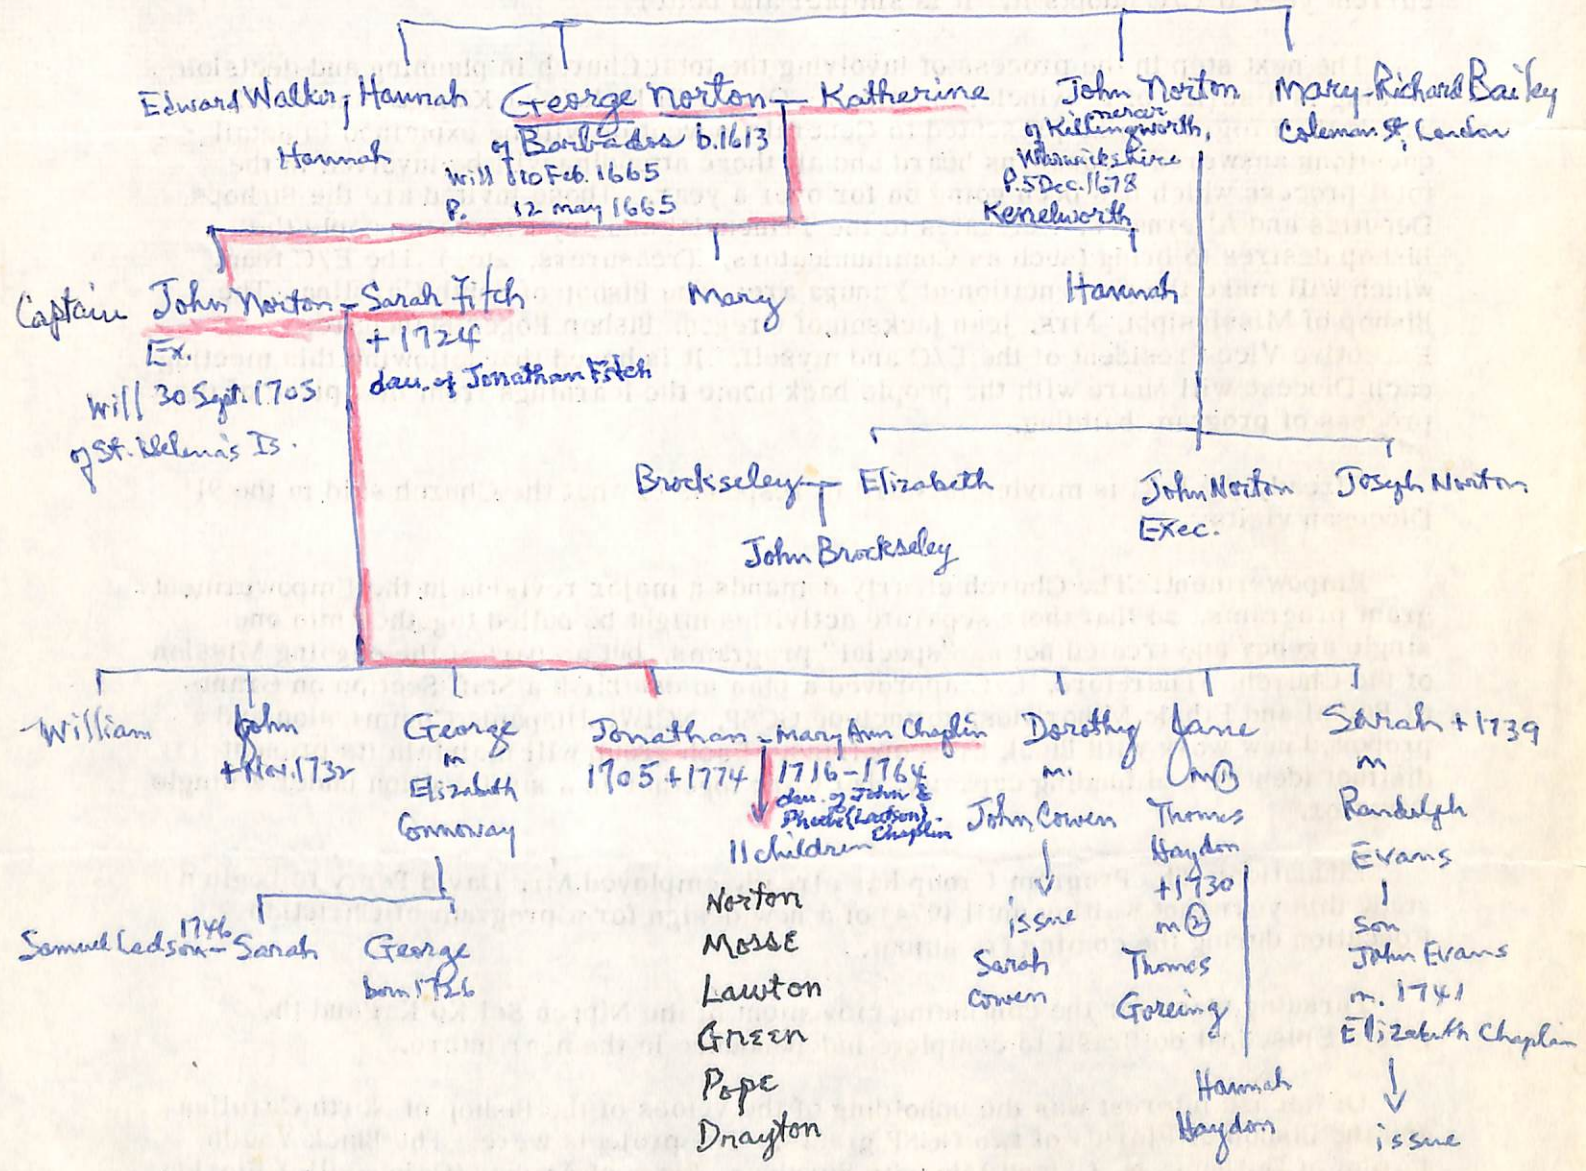 Edward Walker, Hannah
Hannah
George Norton - Katherine
of Barbados b.1613
Will 10 Feb. 1665
P. 12 May 1665
John Norton
mercer
of Killingworth,
Warwickshire
P. 5 Dec. 1678
Kenelworth
Mary - Richard Bailey
Coleman St, London
Captain John Norton - Sarah Fitch
Ex.
Will 30 Sept. 1705
of St. Helena's Is.
+ 1724
dau. of Jonathan Fitch
Mary
Hannah
Brockseley - Elizabeth
John Brockseley
John Norton
Exec.
Joseph Norton
William
John
+ Nov. 1732
George
m
Elizabeth
Connoway
Samuel Ladson 1746 - Sarah
George
born 1726
Jonathan - Mary Ann Chaplin
1705 + 1774
1716 - 1764
dau. of John &
Phoebe (Ladson)
Chaplin
11 children
Norton
Mosse
Lawton
Green
Pope
Drayton
Dorothy
m.
John Cowen
issue
Sarah
Cowen
Jane
m ①
Thomas
Haydon
+ 1730
m ②
Thomas
Goreing
Hannah
Haydon
Sarah + 1739
m
Randolph
Evans
son
John Evans
m. 1741
Elizabeth Chaplin
issue